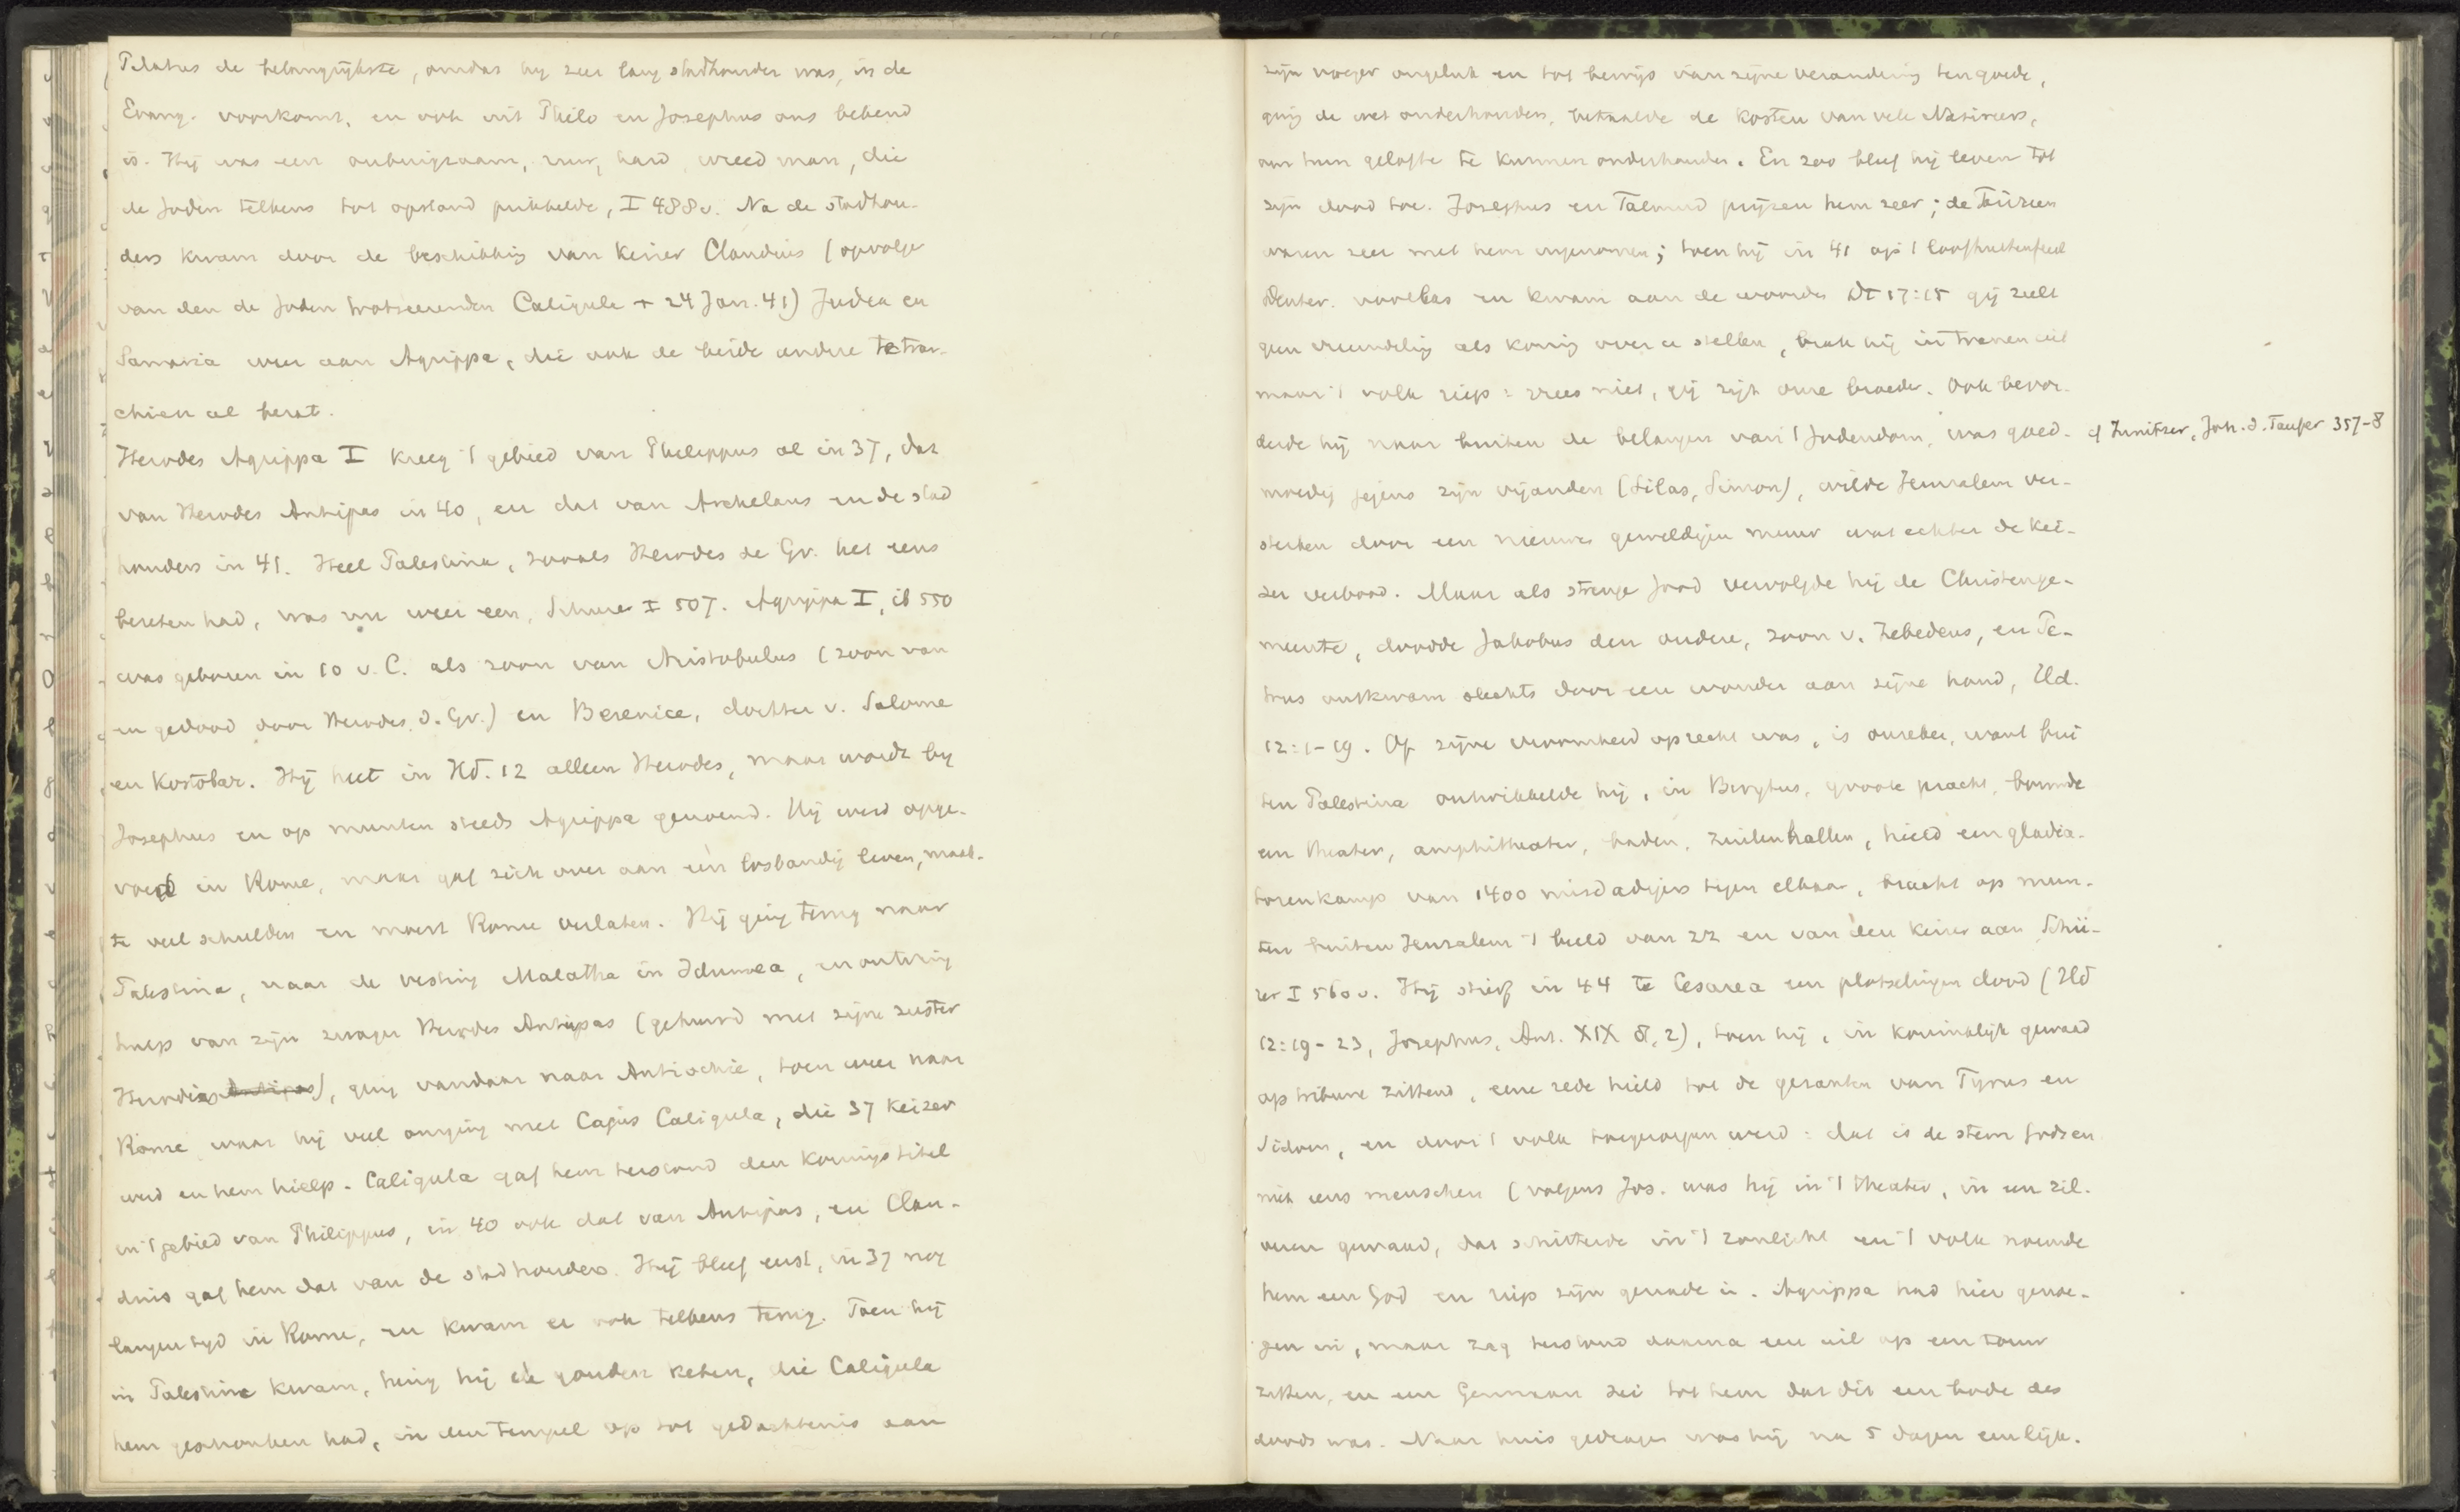 Pilatus de belangrijkste, omdat hij zeer lang stadhouder was, in de
Evang. voorkomt, en ook uit Philo en Josephus ons bekend
is. Hij was een onbuigzaam, ruw, hard, wreed man, die
de Joden telkens tot opstand prikkelde, I 488v. Na de stadhou-
ders kwam door de beschikking van Keizer Claudius (opvolger
van den de Joden trotseerenden Caligula + 24 Jan. 41) Judea en
Samaria weer aan Agrippa, die ook de beide andere tetrar-
chieën al bezat.
Herodes Agrippa I kreeg 't gebied van Philippus al in 37, dat
van Herodes Antipas in 40, en dat van Archelaus en de stad
houders in 41. Heel Palestina, zooals Herodes de Gr. het eens
bezeten had, was nu weer een, Schürer I 507. Agrippa I, ib 550
was geboren in 10 v. C. als zoon van Aristobulus (zoon van
en gedood door Herodes d. Gr.) en Berenice, dochter v. Salome
en Kostobar. Hij heet in Hd. 12 alleen Herodes, maar wordt bij
Josephus en op munten steeds Agrippa genoemd. Hij werd opge-
voed in Rome, maar gaf zich over aan een losbandig leven, maak-
te veel schulden en moest Rome verlaten. Hij ging terug naar
Palestina, naar de vesting Malatha in Idumea, en ontving
hulp van zijn zwager Herodes Antipas (gehuwd met zijne zuster
Herodias Antipas), ging vandaar naar Antiochië, toen weer naar
Rome, waar hij veel omging met Cajus Caligula, die 37 Keizer
werd en hem hielp. Caligula gaf hem terstond den Koningstitel
en 't gebied van Philippus, in 40 ook dat van Antipas, en Clau-
dius gaf hem dat van de stadhouders. Hij bleef eerst, in 37 nog
langen tijd in Rome, en kwam er ook telkens terug. Toen hij
in Palestina kwam, hing hij de gouden keten, die Caligula
hem geschonken had, in den tempel op tot gedachtenis aan
zijn vroeger ongeluk en tot bewijs van zijne verandering ten goede,
ging de wet onderhouden, betaalde de kosten van vele Nazireërs,
om hun gelofte te kunnen onderhouden. En zoo bleef hij leven tot
zijn dood toe. Josephus en Talmud prijzen hem zeer; de Farizeen
waren zeer met hem ingenomen; toen hij in 41 op 't loofhuttenfeest
Deuter. voorlas en kwam aan de woorden Dt 17:15 gij zult
geen vreemdeling als koning over u stellen, brak hij in tranen uit
maar 't volk riep: vrees niet, gij zijt onze broeder. Ook bevor-
derde hij naar buiten de belangen van 't Jodendom, was goed-
cf Innitzer, Joh. d. Taufer 357-8
moedig jegens zijn vijanden (Silas, Simon), wilde Jeruzalem ver-
sterken door een nieuwen geweldigen muur wat echter de kei-
zer verbood. Maar als strenge Jood vervolgde hij de Christenge-
meente, doodde Jakobus den oudere, zoon v. Zebedeus, en Pe-
trus ontkwam slechts door een wonder aan zijne hand, Hd.
12:1-19. Of zijne vroomheid oprecht was, is onzeker, want bui
ten Palestina ontwikkelde hij, in Berytus, groote pracht, bouwde
een theater, amphitheater, baden, zuilenhallen, hield een gladia-
torenkamp van 1400 misdadigers tegen elkaar, bracht op mun-
ten buiten Jeruzalem 't beeld van zz en van den Keizer aan Schü-
rer I 560v. Hij stierf in 44 te Cesarea een plotselingen dood (Hd
12:19-23, Josephus, Ant. XIX 8, 2), toen hij, in koninklijk gewaad
op tribune zittend, eene rede hield tot de gezanten van Tyrus en
Sidon, en door 't volk toegeroepen werd: dat is de stem Gods en
niet eens menschen (volgens Jos. was hij in 't theater, in een zil-
veren gewaad, dat schitterde in 't zonlicht en 't volk noemde
hem een God en riep zijn genade in. Agrippa had hier genoe-
gen in, maar zag terstond daarna een uil op een touw
zitten, en een Germaan zei tot hem dat dit een bode des
doods was. Naar huis gedragen was hij na 5 dagen een lijk.